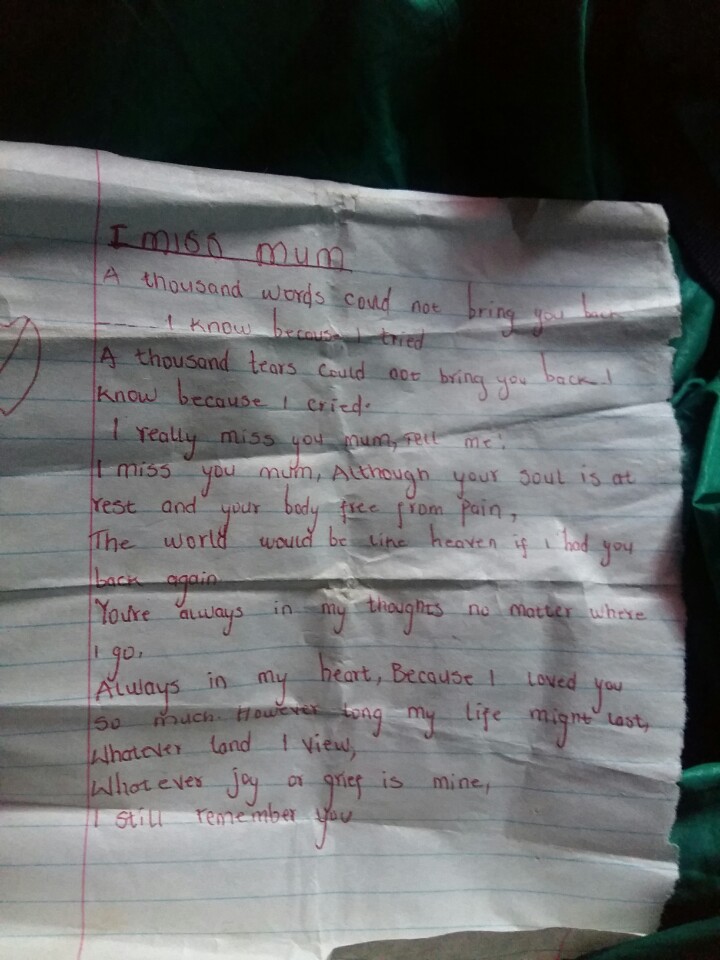 I miss mum
A thousand words could not bring you back
---- I know because I tried
A thousand tears could not bring you back I
know because I cried.
I really miss you mum, Tell me!
I miss you mum, Although your soul is at
rest and your body free from pain,
The world would be like heaven if i had you
back again
You're always in my thoughts no matter where
I go.
Always in my heart, Because I loved you
so much. However long my life might last,
Whatever land I view,
Whatever joy or grief is mine,
I still remember you